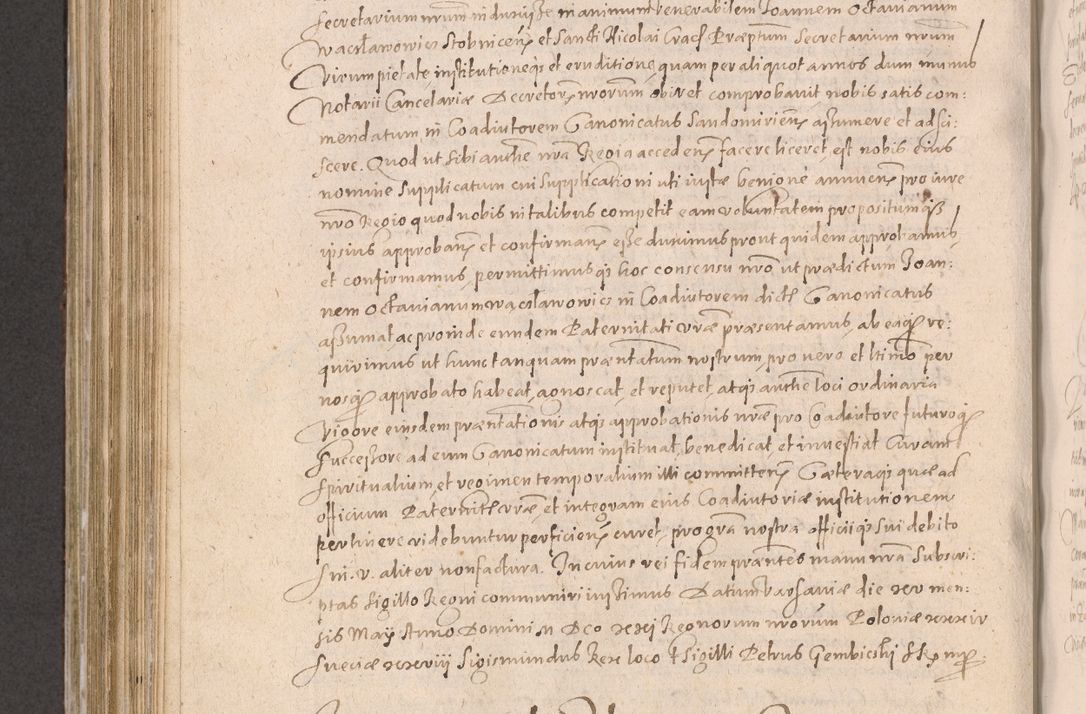 secretarium nrum induxisse in animum venerabilem Joannem Octavianum
Wacławowicz Stobnicen et Sancti Nicolai Crac Præptum Secretarium nrum
Virum pietate institutioneqз et eruditione, quam per aliquot annos dum munus
Notarii Cancelariæ Decretorz nrorum obiret comprobavit nobis satis com:
mendatum in Coadiutorem Canonicatus Sandomirienz assumere et adsci:
scere. Quod ut sibi authe nra Regia accedenz facere liceret est nobis eius
nomine supplicatum cui supplicationi uti iustæ benigne annuenz pro iure
nro Regio quod nobis in talibus competit eam voluntatem propositumqз
ipsius approbanz et confirmanz esse duximus prout quidem approbamus,
et confirmamus, permittimusqз hoc consensu nro ut prædictum Joan:
nem Octavianum Wacławowicz in Coadiutorem dicti Canonicatus
assumat ac proinde eundem Paternitati vræ præsentamus, ab eaqз re:
quirimus ut hunc tanquam præntatum nostrum, pro vero et ltimo per
nosqз approbato habeat, agnoscat, et reputet, atqз authe loci ordinaria
Vigore eiusdem præntationis atqз approbationis nræ pro Coadiutore futuroqз
successore ad eum Canonicatum instituat, benedicat, et investiat Curam
spiritualium, et regimen temporalium illi committenz Cæteraqз quæ ad
officium Paternitis vræ, et integram eius Coadiutoriæ institutionem
pertinere videbuntur perficienz curet, pro gra nostra officiiqз sui debito
sni. v. aliter non factura. In cuius rei fidem præntes manu nra subscri:
ptas sigillo Regni communiri iussimus Datum Varsaviæ die xxv men:
sis Maÿ Anno Domini M Dco xxxi Regnorum nrorum Poloniæ xxxxiv
Sueciæ xxxviii Sigismundus Rex loco Sigilli Petrus Gembicki